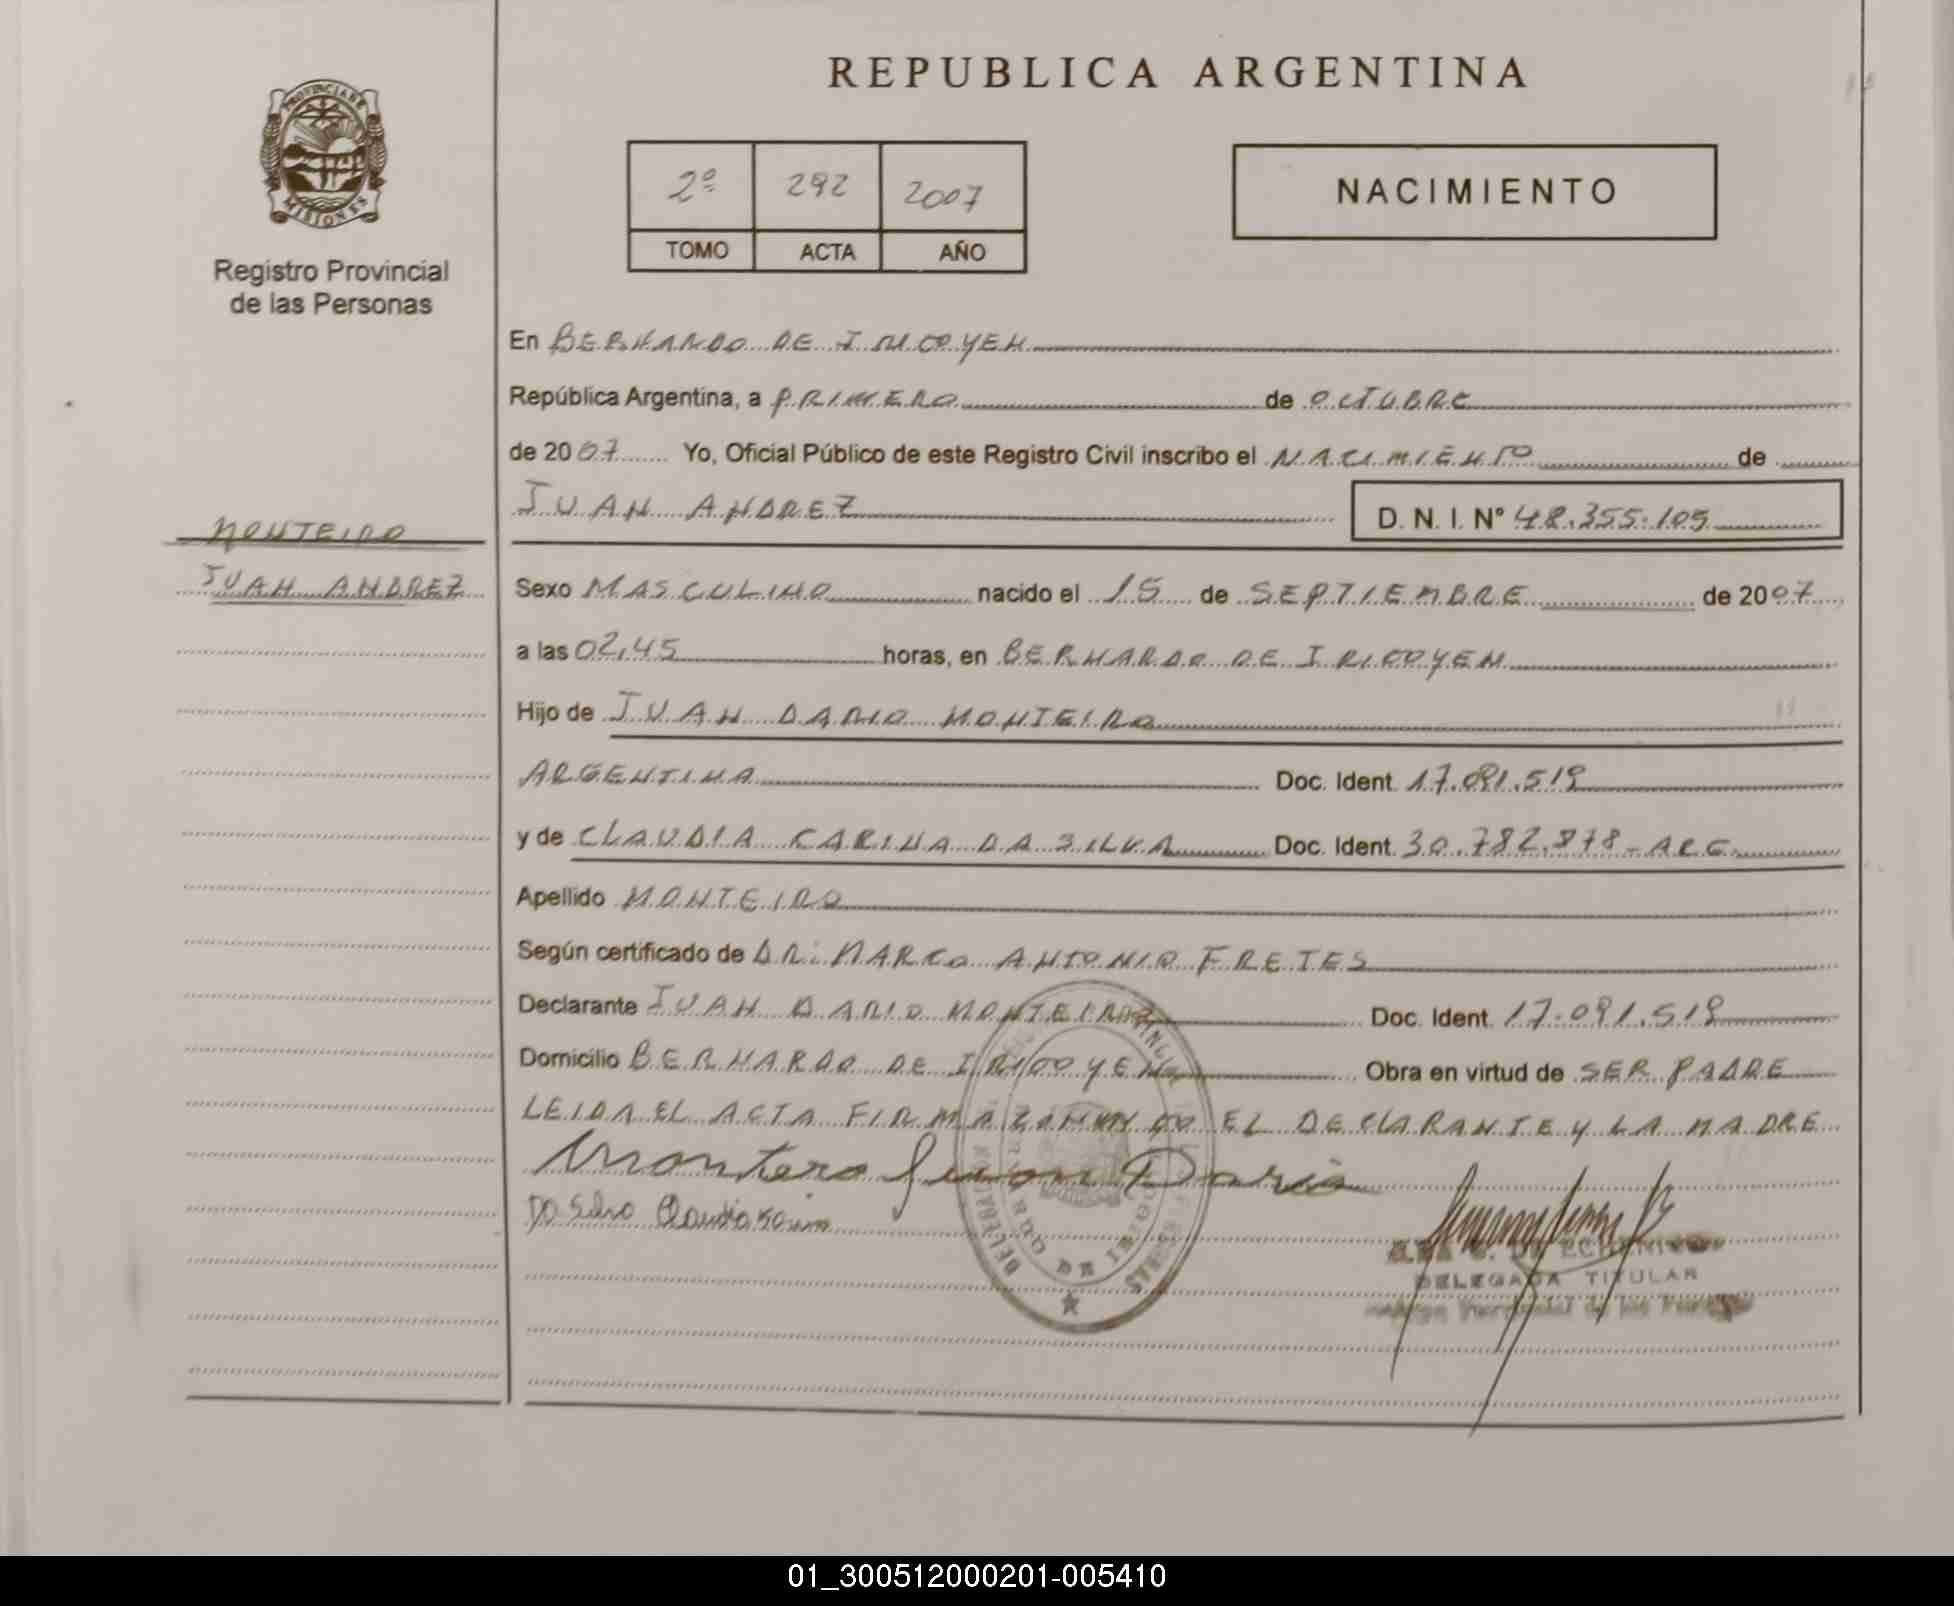 REPUBLICA ARGENTINA
PROVINCIA DE
MISIONES
Registro Provincial
de las Personas
2º 292 2007
TOMO ACTA AÑO
NACIMIENTO
En BERNARDO DE IRIGOYEN
República Argentina, a PRIMERO de OCTUBRE
de 2007 Yo, Oficial Público de este Registro Civil inscribo el NACIMIENTO de
JUAN ANDREZ D. N. I. Nº 48.355.105
MONTEIRO
JUAN ANDREZ
Sexo MASCULINO nacido el 15 de SEPTIEMBRE de 2007
a las 02,45 horas, en BERNARDO DE IRIGOYEN
Hijo de JUAN DARIO MONTEIRO
ARGENTINA Doc. Ident. 17.091.519
y de CLAUDIA CARINA DA SILVA Doc. Ident. 30.782.878-ARG.
Apellido MONTEIRO
Según certificado de DR: MARCO ANTONIO FRETES
Declarante JUAN DARIO MONTEIRO Doc. Ident. 17.091.519
Domicilio BERNARDO DE IRIGOYEN Obra en virtud de SER PADRE
LEIDA EL ACTA FIRMA CONMIGO EL DECLARANTE Y LA MADRE
Montero Juan Dario
Da Silva Claudia
DELEGADA TITULAR
01_300512000201-005410